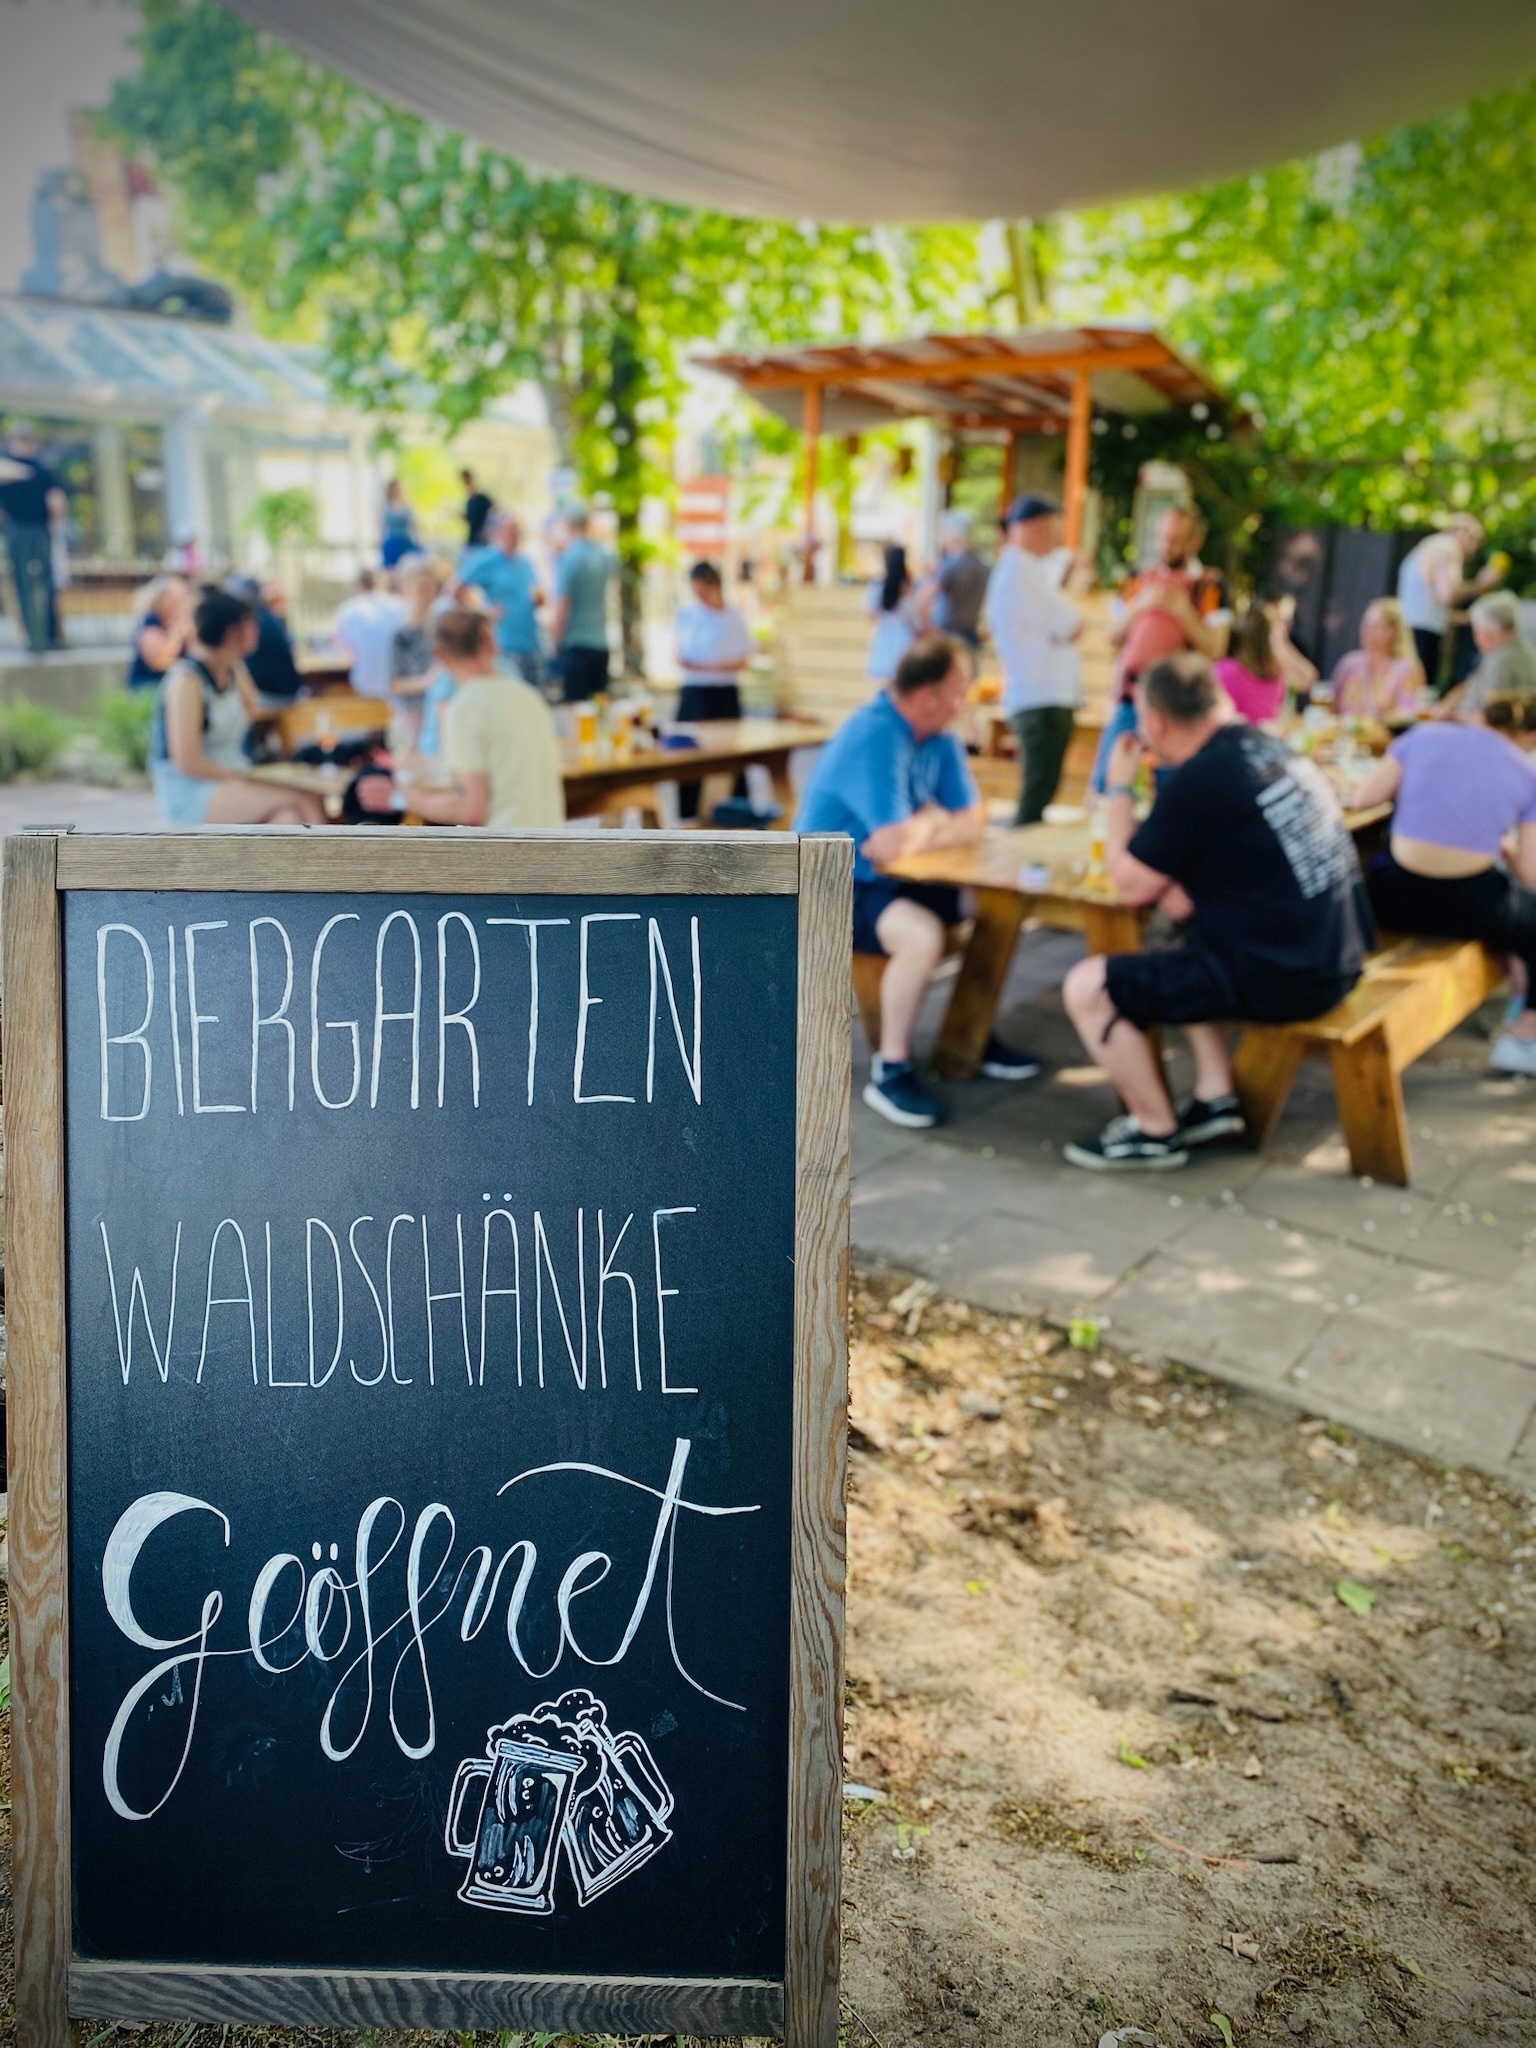 BIERGARTEN
WALDSCHÄNKE
Geöffnet